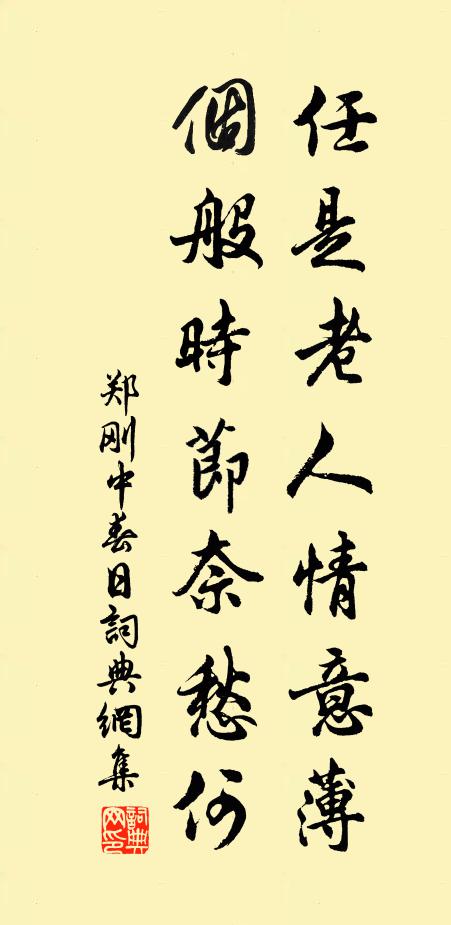 任是老人情意薄
個般時節奈愁何
郑刚中春日詞典網集
詞典网印